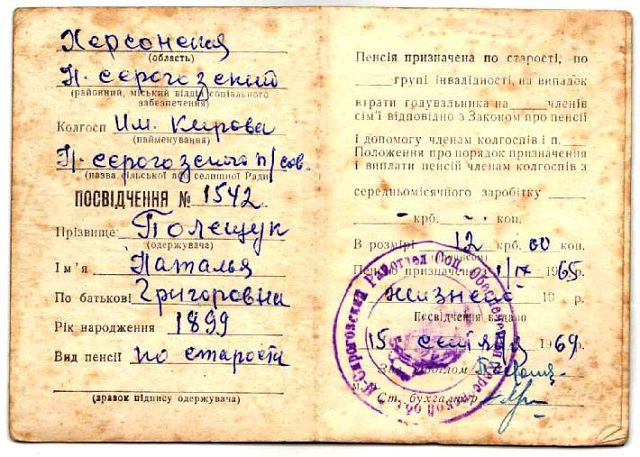 Херсонская
(область)
Н. серогозский
(районний, міський відділ соціального
забезпечення)
Колгосп Им. Кирова
(найменування)
Н. серогозского п/сов.
(назва сільської або селищної Ради)
ПОСВІДЧЕННЯ № 1542
Прізвище Полещук
(одержувача)
Ім'я Наталья
По батькові Григоровна
Рік народження 1899
Вид пенсії по старости
(зразок підпису одержувача)
Пенсія призначена по старості, по
групі інвалідності, на випадок
втрати годувальника на членів
сім'ї відповідно з Законом про пенсії
і допомогу членам колгоспів і п.
Положення про порядок призначення
і виплати пенсій членам колгоспів з
середньомісячного заробітку
- крб. - коп.
В розмірі 12 крб. 00 коп.
Пенсію призначено 1965
жизнено 19 р.
Посвідчення видано
15 сентября 1964
Зав. відділом
Ст. бухгалтер
Н. Серогозский Райотдел Соц. Обеспечения Херсонской обл.